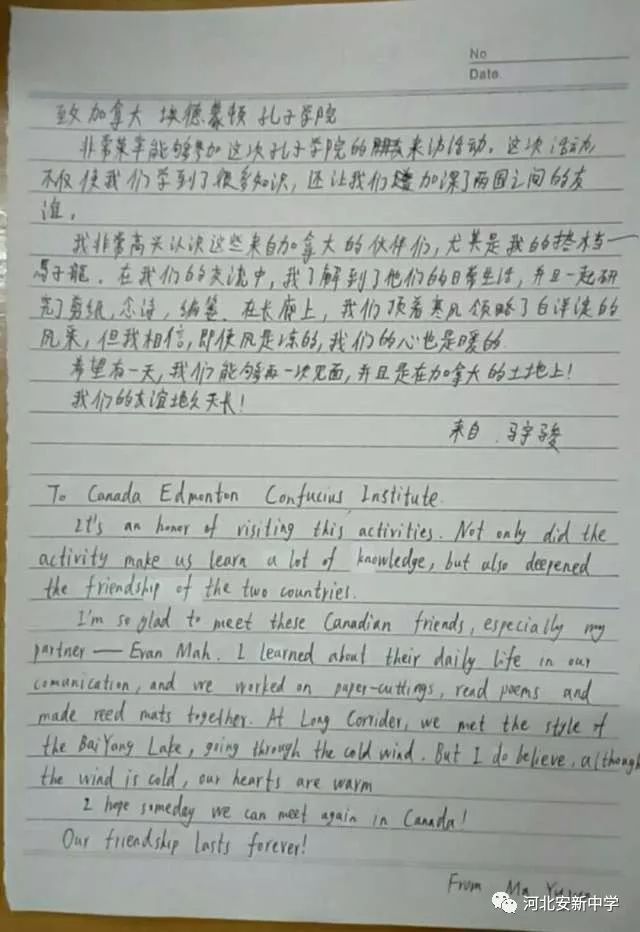 No
Date.
致加拿大 埃德蒙顿 孔子学院
非常荣幸能够参加这次孔子学院的朋友来访活动。这次活动
不仅使我们学到了很多知识，还让我们加深了两国之间的友
谊。
我非常高兴认识这些来自加拿大的伙伴们，尤其是我的搭档——
馬子龍。在我们的交流中，我了解到了他们的日常生活，并且一起研
究了剪纸，念诗，编苇。在长廊上，我们顶着寒风领略了白洋淀的
风采，但我相信，即使风是冻的，我们的心也是暖的
希望有一天，我们能够再一次见面，并且是在加拿大的土地上！
我们的友谊地久天长！
来自 马宇骏
To Canada Edmonton Confucius Institute.
It's an honor of visiting this activities. Not only did the
activity make us learn a lot of knowledge, but also deepened
the friendship of the two countries.
I'm so glad to meet these Canadian friends, especially my
partner — Evan Mah. I learned about their daily life in our
comunication, and we worked on paper-cuttings, read poems and
made reed mats together. At Long Corrider, we met the style of
the BaiYang Lake, going through the cold wind. But I do believe, although
the wind is cold, our hearts are warm
I hope someday we can meet again in Canada!
Our friendship lasts forever!
From Ma
河北安新中学